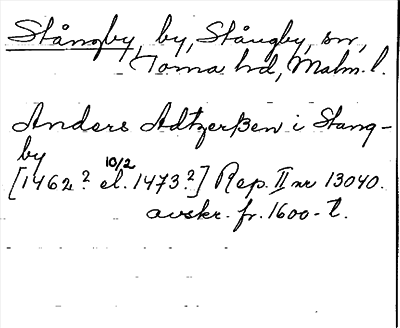 Stångby, by, Stångby, sn,
Torna hd, Malm. l.
Anders Adtzerßen i Stang-
by
10/2
[1462? el. 1473?] Rep. II nr 13040.
avskr. fr. 1600-t.